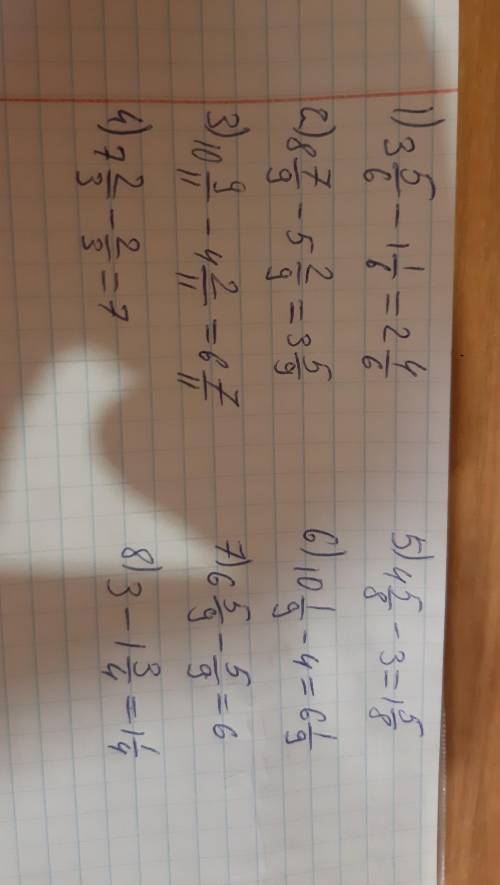 1) 3 5/6 - 1 1/6 = 2 4/6
2) 8 7/9 - 5 2/9 = 3 5/9
3) 10 9/11 - 4 2/11 = 6 7/11
4) 7 2/3 - 2/3 = 7
5) 4 5/8 - 3 = 1 5/8
6) 10 1/9 - 4 = 6 1/9
7) 6 5/9 - 5/9 = 6
8) 3 - 1 3/4 = 1 1/4